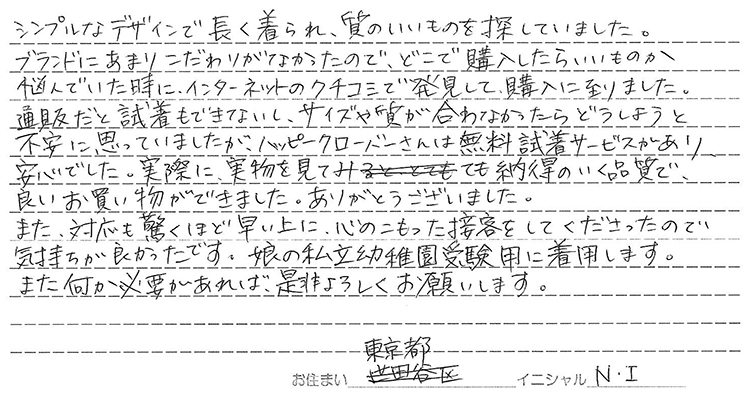 シンプルなデザインで長く着られ、質のいいものを探していました。
ブランドにあまりこだわりがなかったので、どこで購入したらいいものか
悩んでいた時に、インターネットのクチコミで発見して、購入に至りました。
通販だと試着もできないし、サイズや質が合わなかったらどうしようと
不安に思っていましたが、ハッピークローバーさんは無料試着サービスがあり、
安心でした。実際に、実物を見てみるととてもても納得のいく品質で、
良いお買い物ができました。ありがとうございました。
また、対応も驚くほど早い上に、心のこもった接客をしてくださったので
気持ちが良かったです。娘の私立幼稚園受験用に着用します。
また何か必要があれば、是非よろしくお願いします。
東京都
お住まい 世田谷区 イニシャル N・I